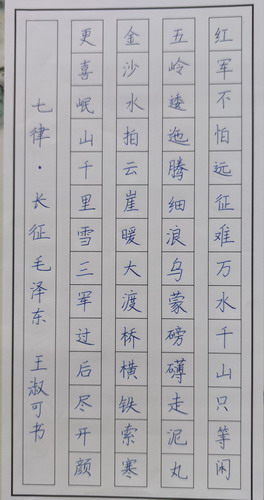 红军不怕远征难万水千山只等闲
五岭逶迤腾细浪乌蒙磅礴走泥丸
金沙水拍云崖暖大渡桥横铁索寒
更喜岷山千里雪三军过后尽开颜
七律·长征毛泽东 王淑可书